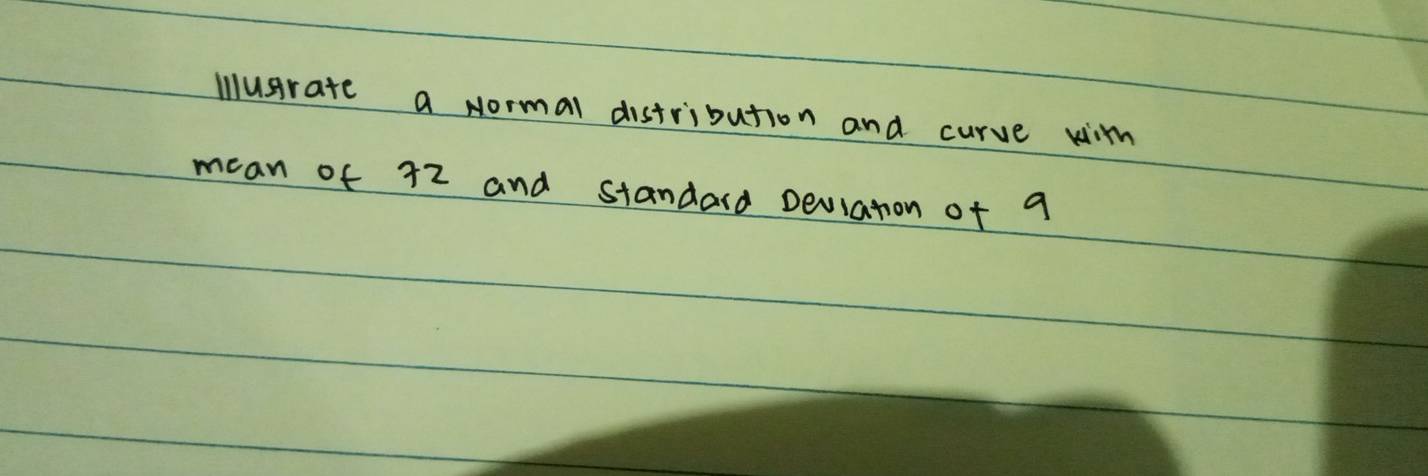 Illusrate a Normal distribution and curve with
mean of 72 and Standard Deviation of 9